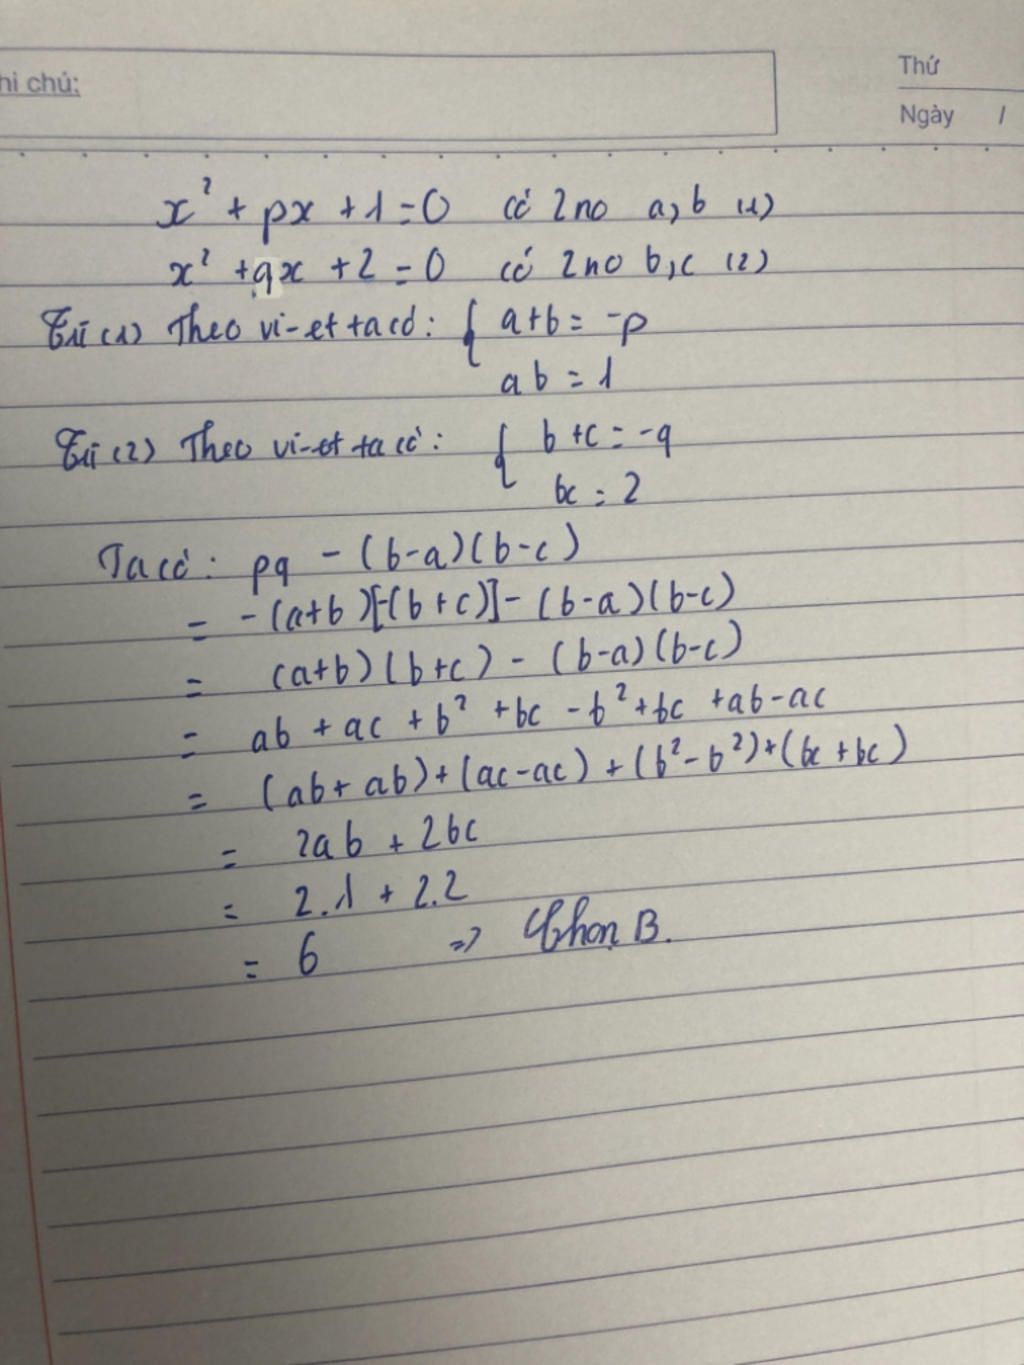 hi chú:
Thứ
Ngày /
x² + px + 1 = 0 có 2 no a, b (1)
x² + qx + 2 = 0 có 2 no b, c (2)
Từ (1) Theo vi-et ta có: { a+b = -p
ab = 1
Từ (2) Theo vi-et ta có: { b+c = -q
bc = 2
Ta có: pq - (b-a)(b-c)
= -(a+b)[-(b+c)] - (b-a)(b-c)
= (a+b)(b+c) - (b-a)(b-c)
= ab + ac + b² + bc - b² + bc + ab - ac
= (ab + ab) + (ac - ac) + (b² - b²) + (bc + bc)
= 2ab + 2bc
= 2.1 + 2.2
= 6 => Chọn B.